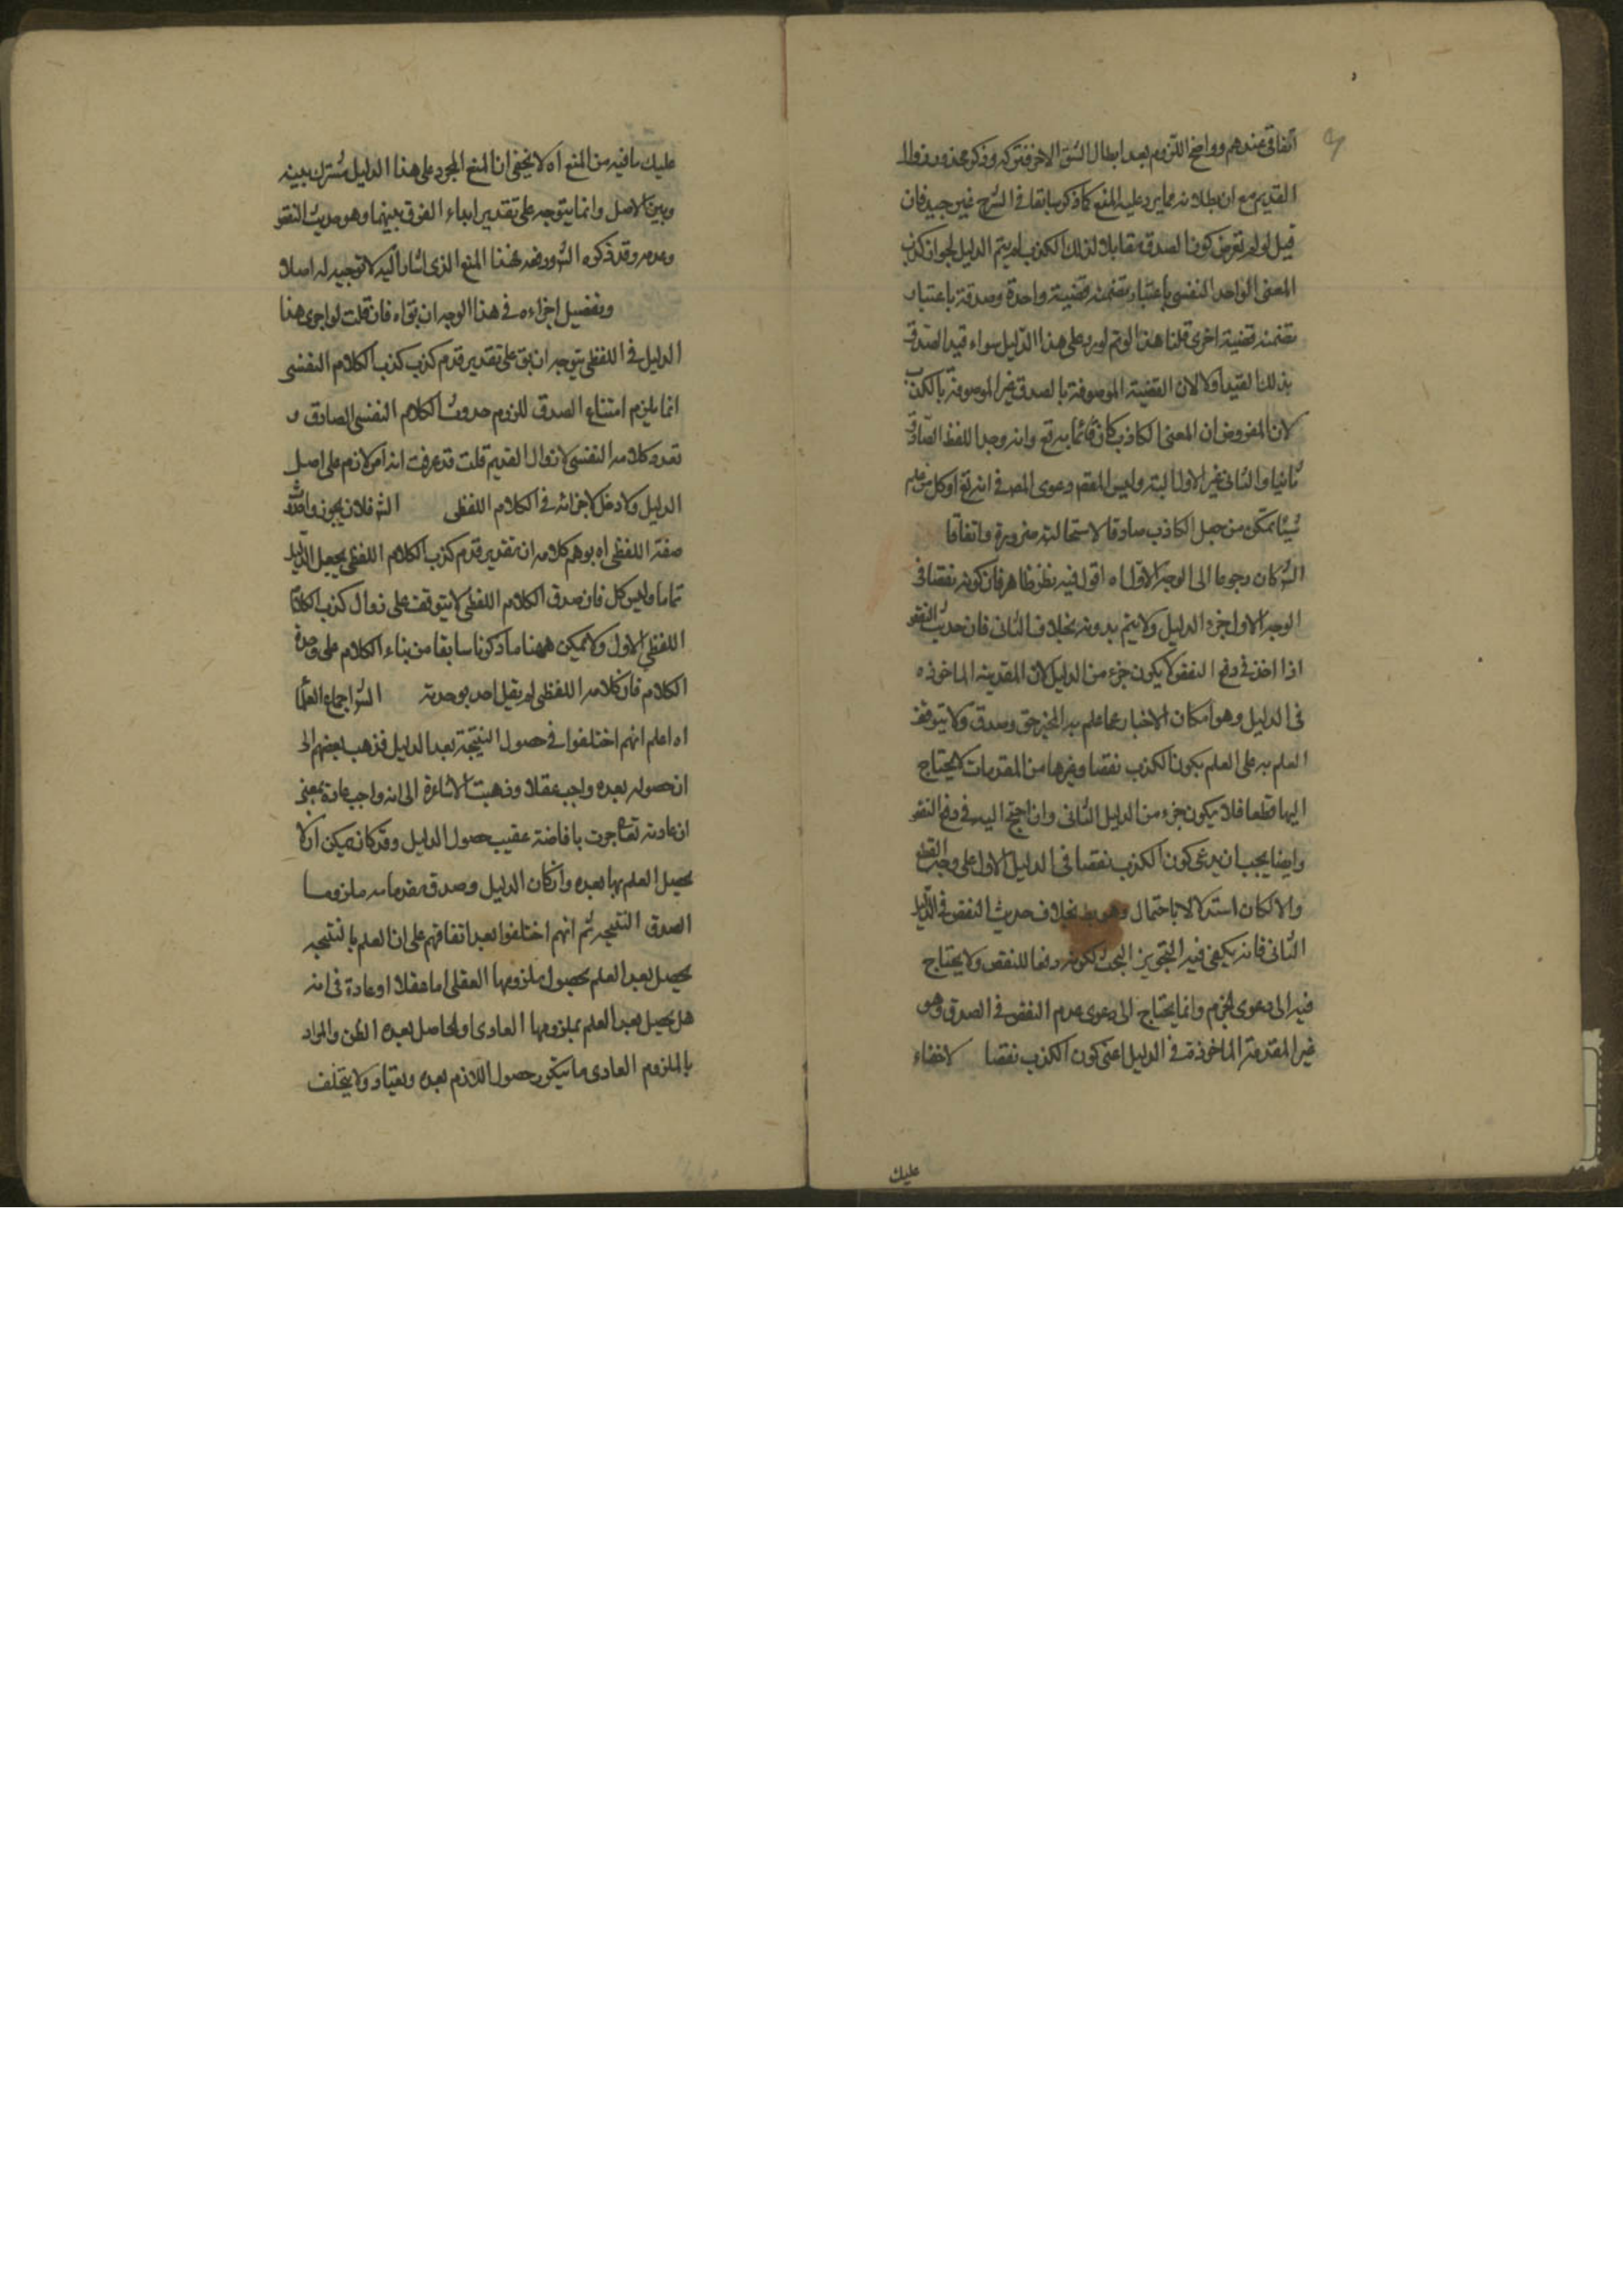 اتفاقى عندهم وواضح اللزوم بعد ابطال الشق الاخر فتركه وذكر محذور زوال
القديم مع ان بطلانه مما يرد عليه المنع كما ذكر سابقا فى الشرح غير جيد فان
قيل لو لم تعرض كون الصدق مقابلا لذلك الكذب لم يتم الدليل لجواز كذب
المعنى الواحد النفسى باعتبار تضمنه قضية واحدة وصدقه باعتبار
تضمنه قضية اخرى قلنا هذا لو تم لورد على هذا الدليل سواء قيد الصدق
بذلك القيد او لا لان القضية الموصوفة بالصدق غير الموصوفة بالكذب
لان المفروض ان المعنى الكاذب كان قائما به تع وانه وجد اللفظ الصادق
ثانيا والثانى غير الاول البتة وليس المقصم دعوى المص فى انه تع او كل من علم
شيئا تمكن من جعل الكاذب صادقا لاستحالته ضرورة واتفاقا
الش كان رجوعا الى الوجه الاول اه اقول فيه نظر ظاهر فان كونه نقصا فى
الوجه الاول جزء الدليل ولا يتم بدونه بخلاف الثانى فان حديث النقص
اذا اخذ فى دفع النقض لا يكون جزء من الدليل لان المقدمة الماخوذه
فى الدليل وهو امكان الاخبار عما علم به المخبر حق وصدق ولا يتوقف
العلم به على العلم بكون الكذب نقصا وغيرها من المقدمات لا يحتاج
اليها قطعا فلا يكون جزء من الدليل الثانى وان احتج اليه فى دفع النقض
وايضا يجب ان يدعى كون الكذب نقصا فى الدليل الاول على وجه القطع
والا لكان استدلالا باحتمال وهو بط بخلاف حديث النقص فى الدليل
الثانى فانه يكفى فيه التجويز البحث لكونه دفعا للنقض ولا يحتاج
فيه الى دعوى الجزم وانما يحتاج الى دعوى عدم النقص فى الصدق وهو
غير المقدمة الماخوذة فى الدليل اعنى كون الكذب نقصا لا خفاء
عليك
عليك ما فيه من المنع اه لا يخفى ان المنع المجرد على هذا الدليل مشترك بينه
وبين الاصل وانما يتوجه على تقدير ابداء الفرق بينهما وهو حديث النقص
وعدمه وقد ذكره الش ودفعه فهذا المنع الذى اشار اليه لا توجيه له اصلا
وتفضيل اجزاءه فى هذا الوجه ان يق اه فان قلت لو اجرى هذا
الدليل فى اللفظى يتوجه ان يق على تقدير قدم كذب كذب الكلام النفسى
انما يلزم امتناع الصدق للزوم حدوث الكلام النفسى الصادق و
تعدد كلامه النفسى لا زوال القديم قلت قد عرفت انه امر لازم على اصل
الدليل ولا دخل لاجزائه فى الكلام اللفظى الش فلان يجوز واحدة
صفة اللفظى اه يوهم كلامه ان تقدير قدم كذب الكلام اللفظى يجعل الدليل
تماما وليس كل فان صدق الكلام اللفظى لا يتوقف على زوال كذب الكلام
اللفظى الاول ولا يمكن ههنا ما ذكرنا سابقا من بناء الكلام على وحدة
الكلام فان كلامه اللفظى لم يقل احد بوحدته الش اجماع العلما
اه اعلم انهم اختلفوا فى حصول النتيجة بعد الدليل فذهب بعضهم الى
ان حصوله بعده واجب عقلا وذهبت الاشاعرة الى انه واجب عادة بمعنى
ان عادته تعا جرت بافاضته عقيب حصول الدليل وقد كان يمكن ان لا
يحصل العلم بها بعده وان كان الدليل وصدق مقدماته ملزوما
لصدق النتيجه ثم انهم اختلفوا بعد اتفاقهم على ان العلم بالنتيجه
يحصل بعد العلم بحصول ملزومها العقلى اما عقلا او عادة فى انه
هل يحصل بعد العلم بملزومها العادى او الحاصل بعده الظن والمراد
بالملزوم العادى ما يتكرر حصول اللازم بعده ويعتاد ولا يتخلف